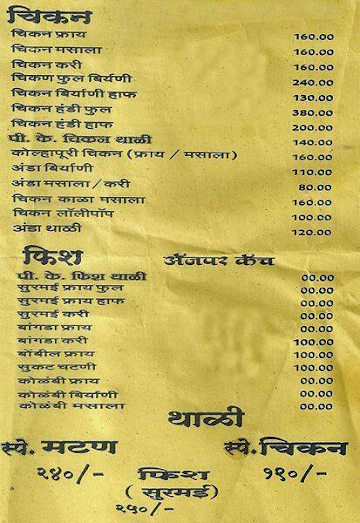 चिकन
चिकन फ्राय 160.00
चिकन मसाला 160.00
चिकन करी 160.00
चिकण फुल बिर्याणी 240.00
चिकन बिर्याणी हाफ 130.00
चिकन हंडी फुल 380.00
चिकन हंडी हाफ 200.00
पी. के. चिकन थाळी 140.00
कोल्हापूरी चिकन (फ्राय / मसाला) 160.00
अंडा बिर्याणी 110.00
अंडा मसाला/करी 80.00
चिकन काळा मसाला 160.00
चिकन लॉलीपॉप 100.00
अंडा थाळी 120.00
फिश अॅजपर कॅच
पी. के. फिश थाळी 00.00
सुरमई फ्राय फुल 00.00
सुरमई फ्राय हाफ 00.00
सुरमई करी 00.00
बांगडा फ्राय 00.00
बांगडा करी 100.00
बोंबील फ्राय 100.00
सुकट चटणी 100.00
कोळंबी फ्राय 00.00
कोळंबी बिर्याणी 00.00
कोळंबी मसाला 00.00
थाळी
स्पे. मटण स्पे. चिकन
२४०/- फिश १९०/-
( सुरमई)
२५०/-